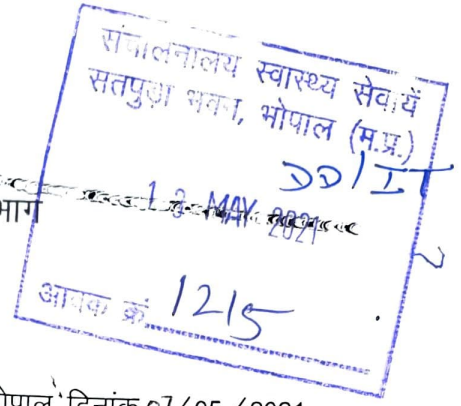 संचालनालय स्वास्थ्य सेवायें
सतपुड़ा भवन, भोपाल (म.प्र.)
DD/IT
भाग
13 MAY 2021
आवक क्रं. 1215
भोपाल दिनांक 07/05/2021